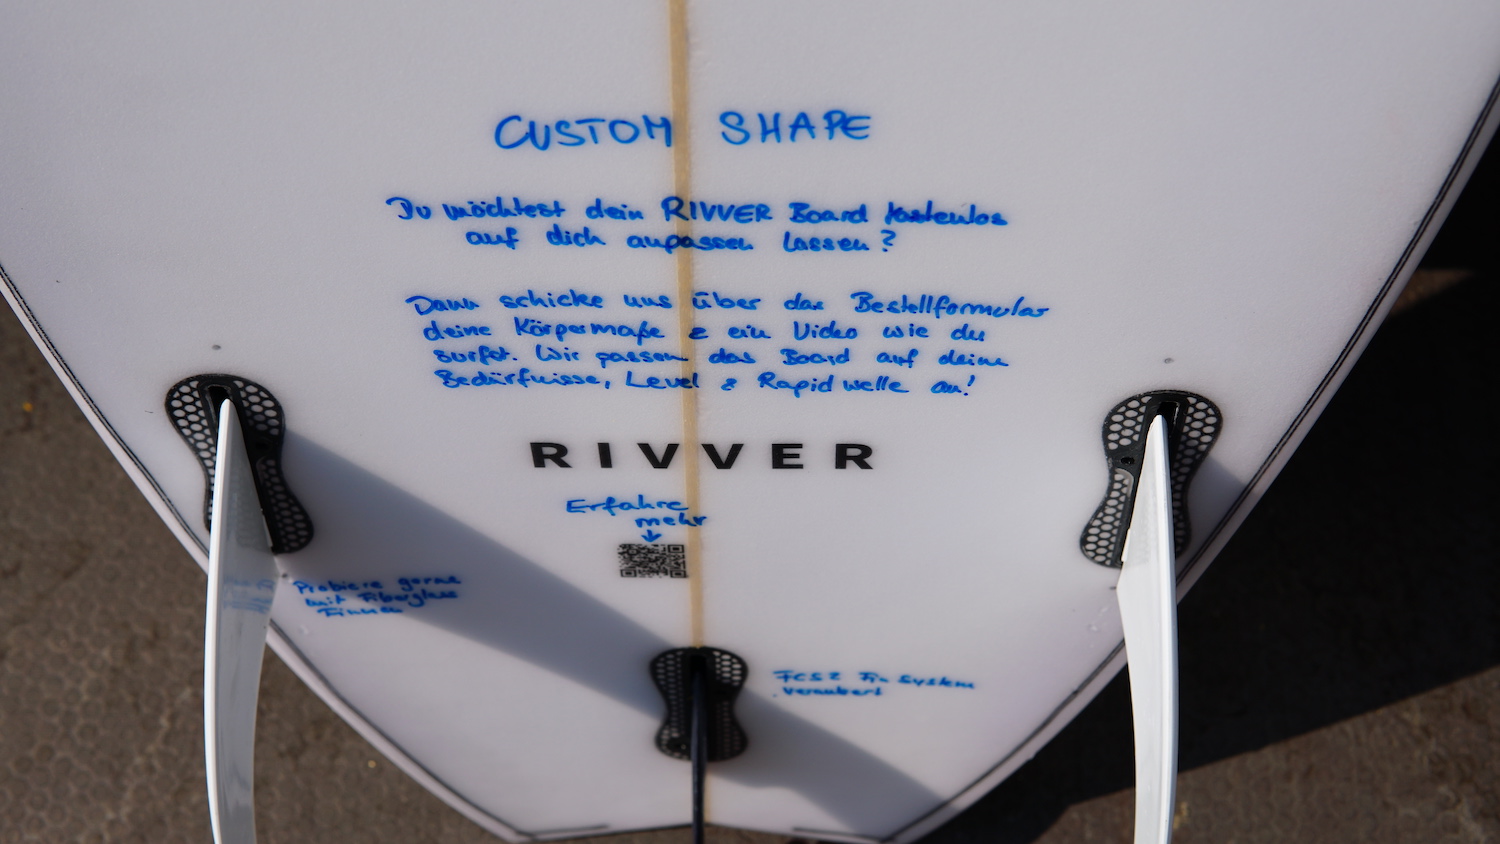 CUSTOM SHAPE
Du möchtest dein RIVVER Board kostenlos
auf dich anpassen lassen?
Dann schicke uns über das Bestellformular
deine Körpermaße & ein Video wie du
surfst. Wir passen das Board auf deine
Bedürfnisse, Level & Rapidwelle an!
RIVVER
Erfahre
mehr
Probiere gerne
mit Fiberglass
Finnen
FCS2 Fin System
verbaut